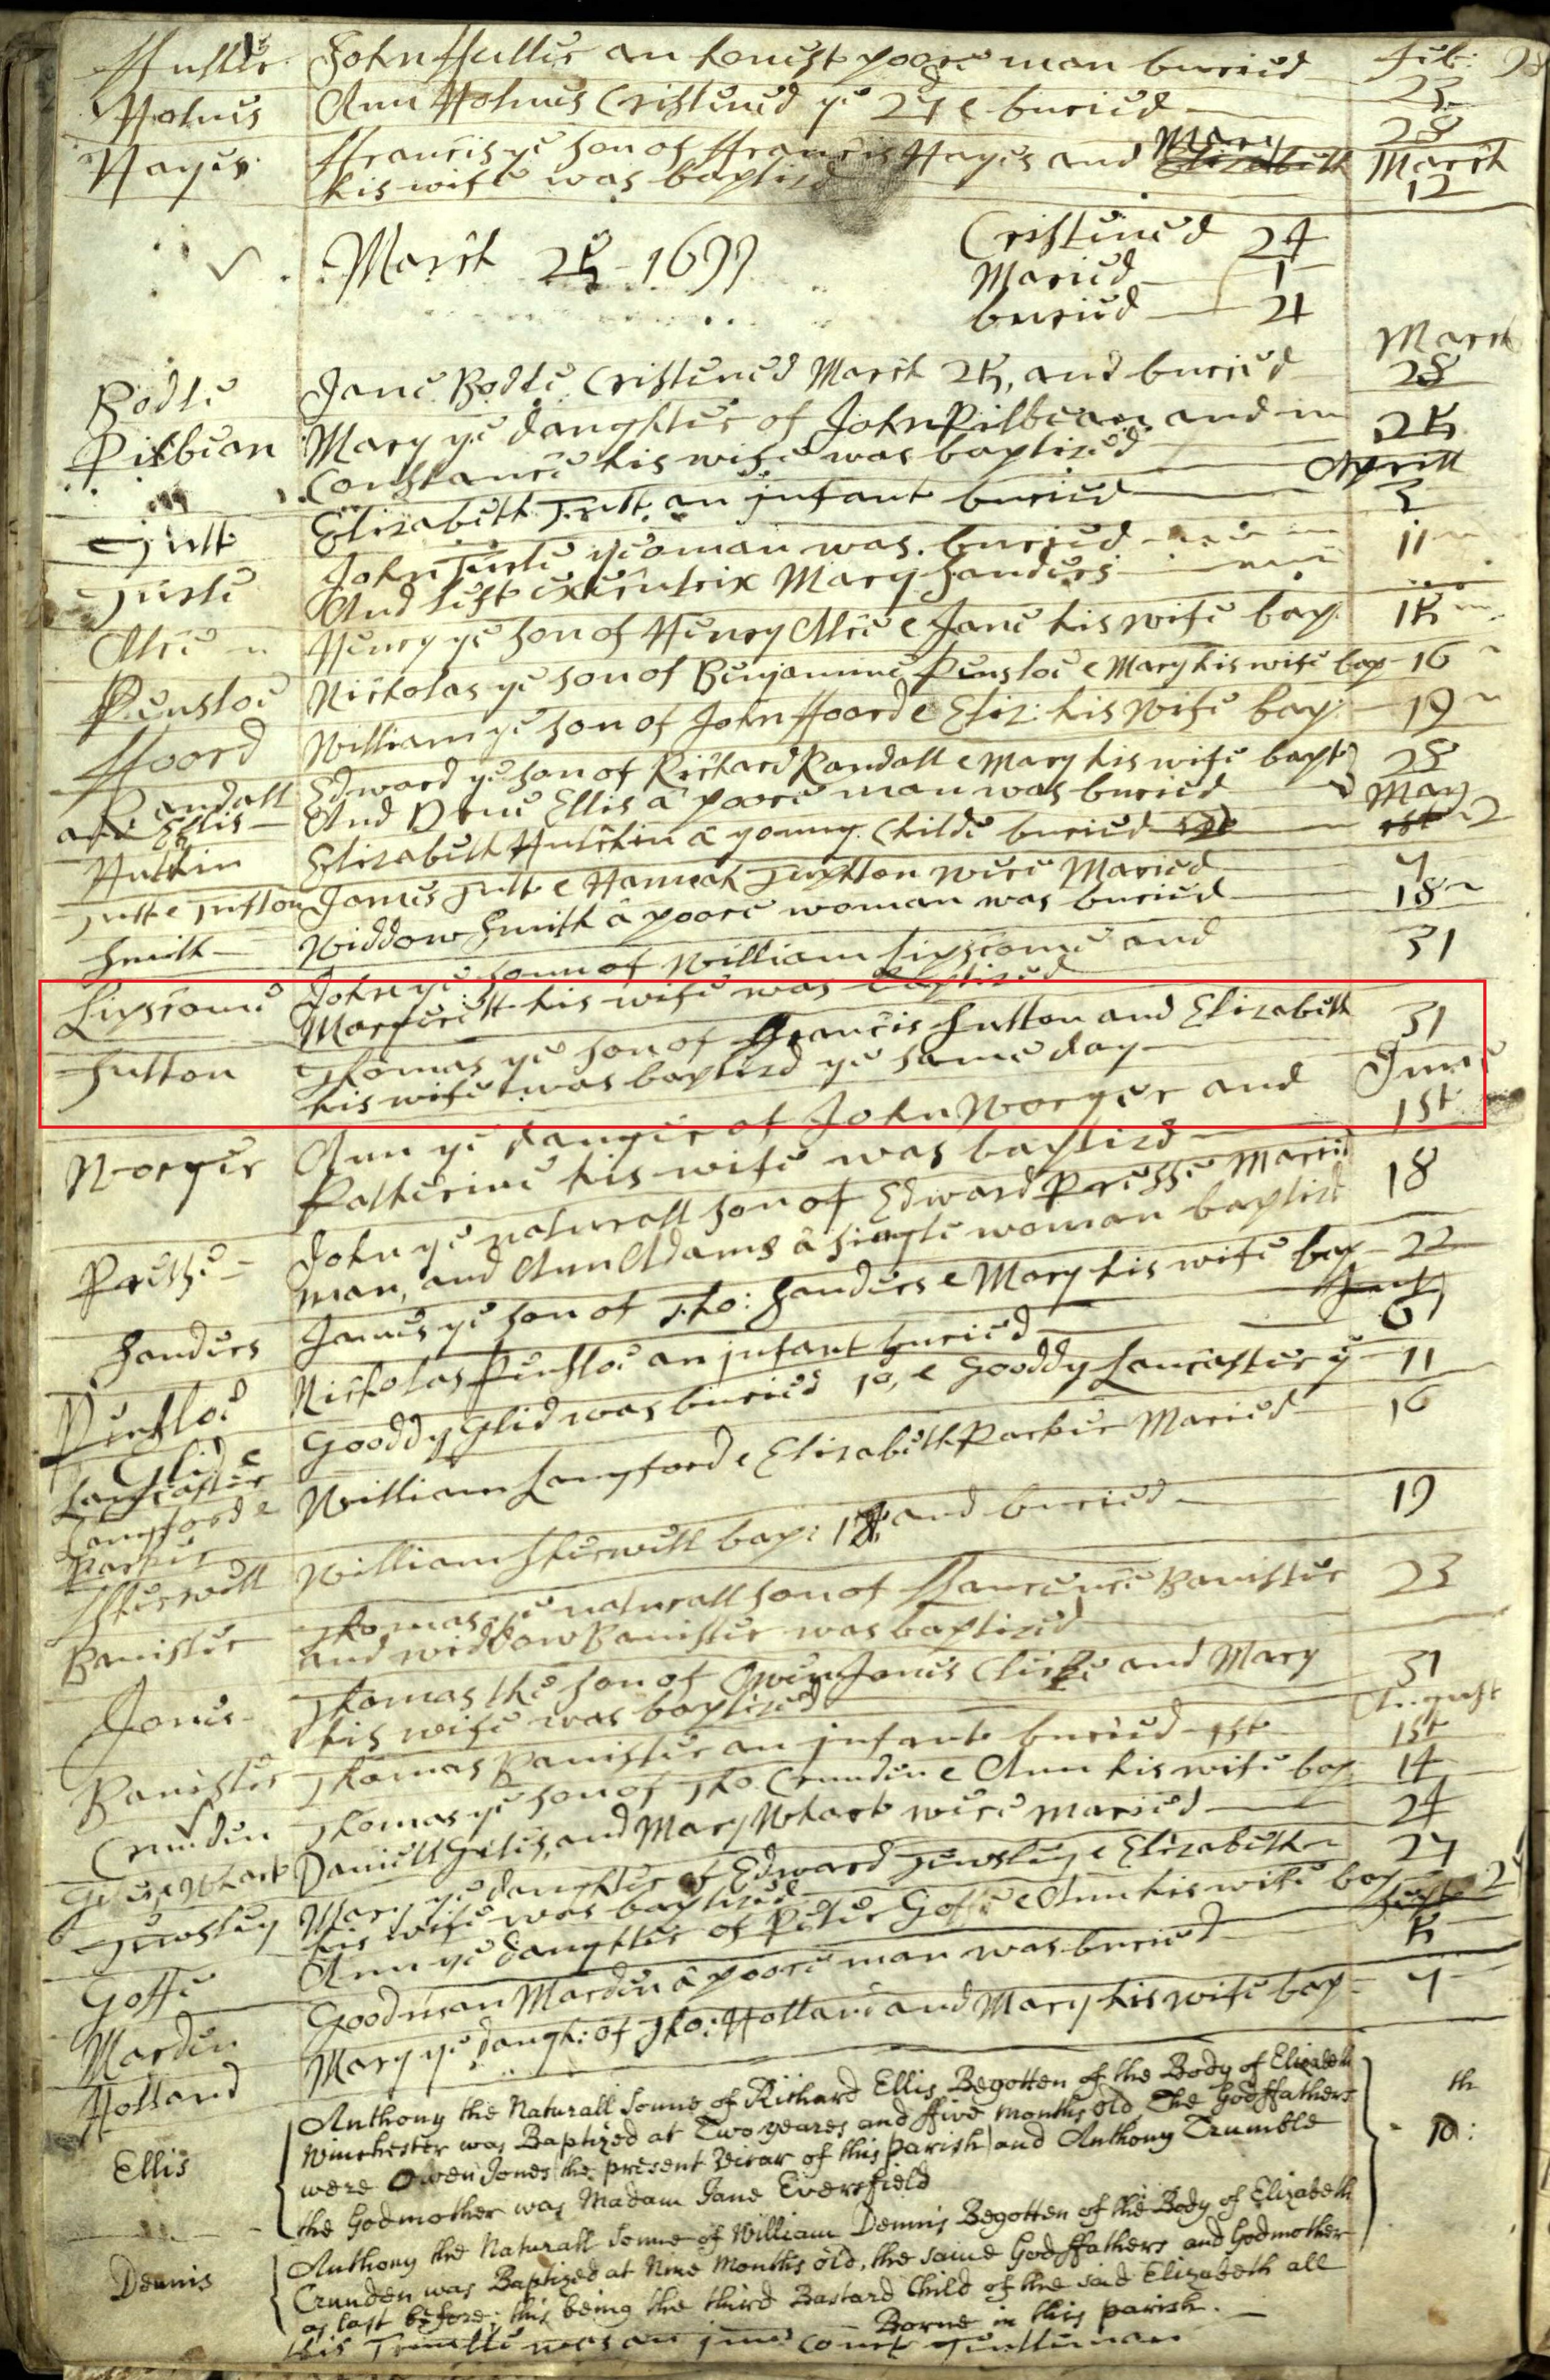 Hullie John Hullie an honest poore man buried Feb:
Holmes Ann Holmes Cristened ye 24 e buried 25
28
Hayes Francis ye son of Francis Hayes and Mary Elizabeth March
his wife was baptized 12
March 25 - 1699 Cristined 24
Maried 1
buried 21
March
Bodle Jane Bodle Cristened March 25, and buried 28
Pilbean Mary ye daughter of John Pilbeam and 25
Constance his wife was baptized
Aprill
Tutt Elizabeth Tutt an infant buried 3
Turle John Turle yeoman was buried 11
And left executrix Mary Sanders
Alce Henry ye son of Henry Alce e Jane his wife bap. 15
Penfloe Nicholas ye son of Benjamine Penfloe e Mary his wife bap 16
Hoord William ye son of John Hoord e Eliz: his wife bap. 19
Randall Edward ye son of Richard Randall e Mary his wife bapt 28
and Ellis And Ellis a poore man was buried May
Hutchin Elizabeth Hutchin a young Childe buried 2
Tutt e Tuffton James Tutt e Hannah Tuffton were Maried 7
Smith Widdow Smith a poore woman was buried 18
Lipscome John ye sonn of William Lipscome and 31
Margerett his wife was baptized
Sutton Thomas ye son of Francis Sutton and Elizabeth 31
his wife was baptizd ye same day
June
Worger Ann ye daugter of John Worger and 1st
Katherine his wife was baptizd
John ye naturall son of Edward Married 18
man, and Ann Adams a single woman baptizd
Sanders James ye son of Tho: Sanders e Mary his wife bap 22
Penfloe Nicholas Penfloe an infant buried
Glid e Gooddy Glid was buried 10, e Gooddy Lancaster ye 11
Lancaster
Langford e William Langford e Elizabeth Parker Maried 16
Parker
William bap: 18, and buried 19
Banister Thomas ye naturall son of Banister 23
and widdow Banister was baptized
Jones Thomas the son of Owen Jones Clirke and Mary 31
his wife was baptized
August
Banister Thomas Banister an infant buried 1st 1st
Crunden Thomas ye son of Tho Crunden e Ann his wife bap 14
Whark Daniell and Mary Whark were maried 24
Mary ye daughter of Edward e Elizabeth 27
his wife was baptized
Goffe Ann ye daughter of Peter Goffe e Ann his wife bap Sept 2
Marden Goodman Marden a poore man was buried 5
Holland Mary ye daugh: of Tho: Holland and Mary his wife bap 7
Anthony the Naturall Sonne of Richard Ellis Begotten of the Body of Elizabeth th
Ellis Winchester was Baptized at Two yeares and ffive months old The Godffathers 10:
were Owen Jones the present Vicar of this parish and Anthony Trumble
the Godmother was Madam Jane Eversfield
Dennis Anthony the Naturall Sonne of William Dennis Begotten of the Body of Elizabeth
Crunden was Baptized at Nine Months old, the same Godffathers and Godmother
as last before; this being the third Bastard Child of the said Elizabeth all
Borne in this parish.
this was an Court